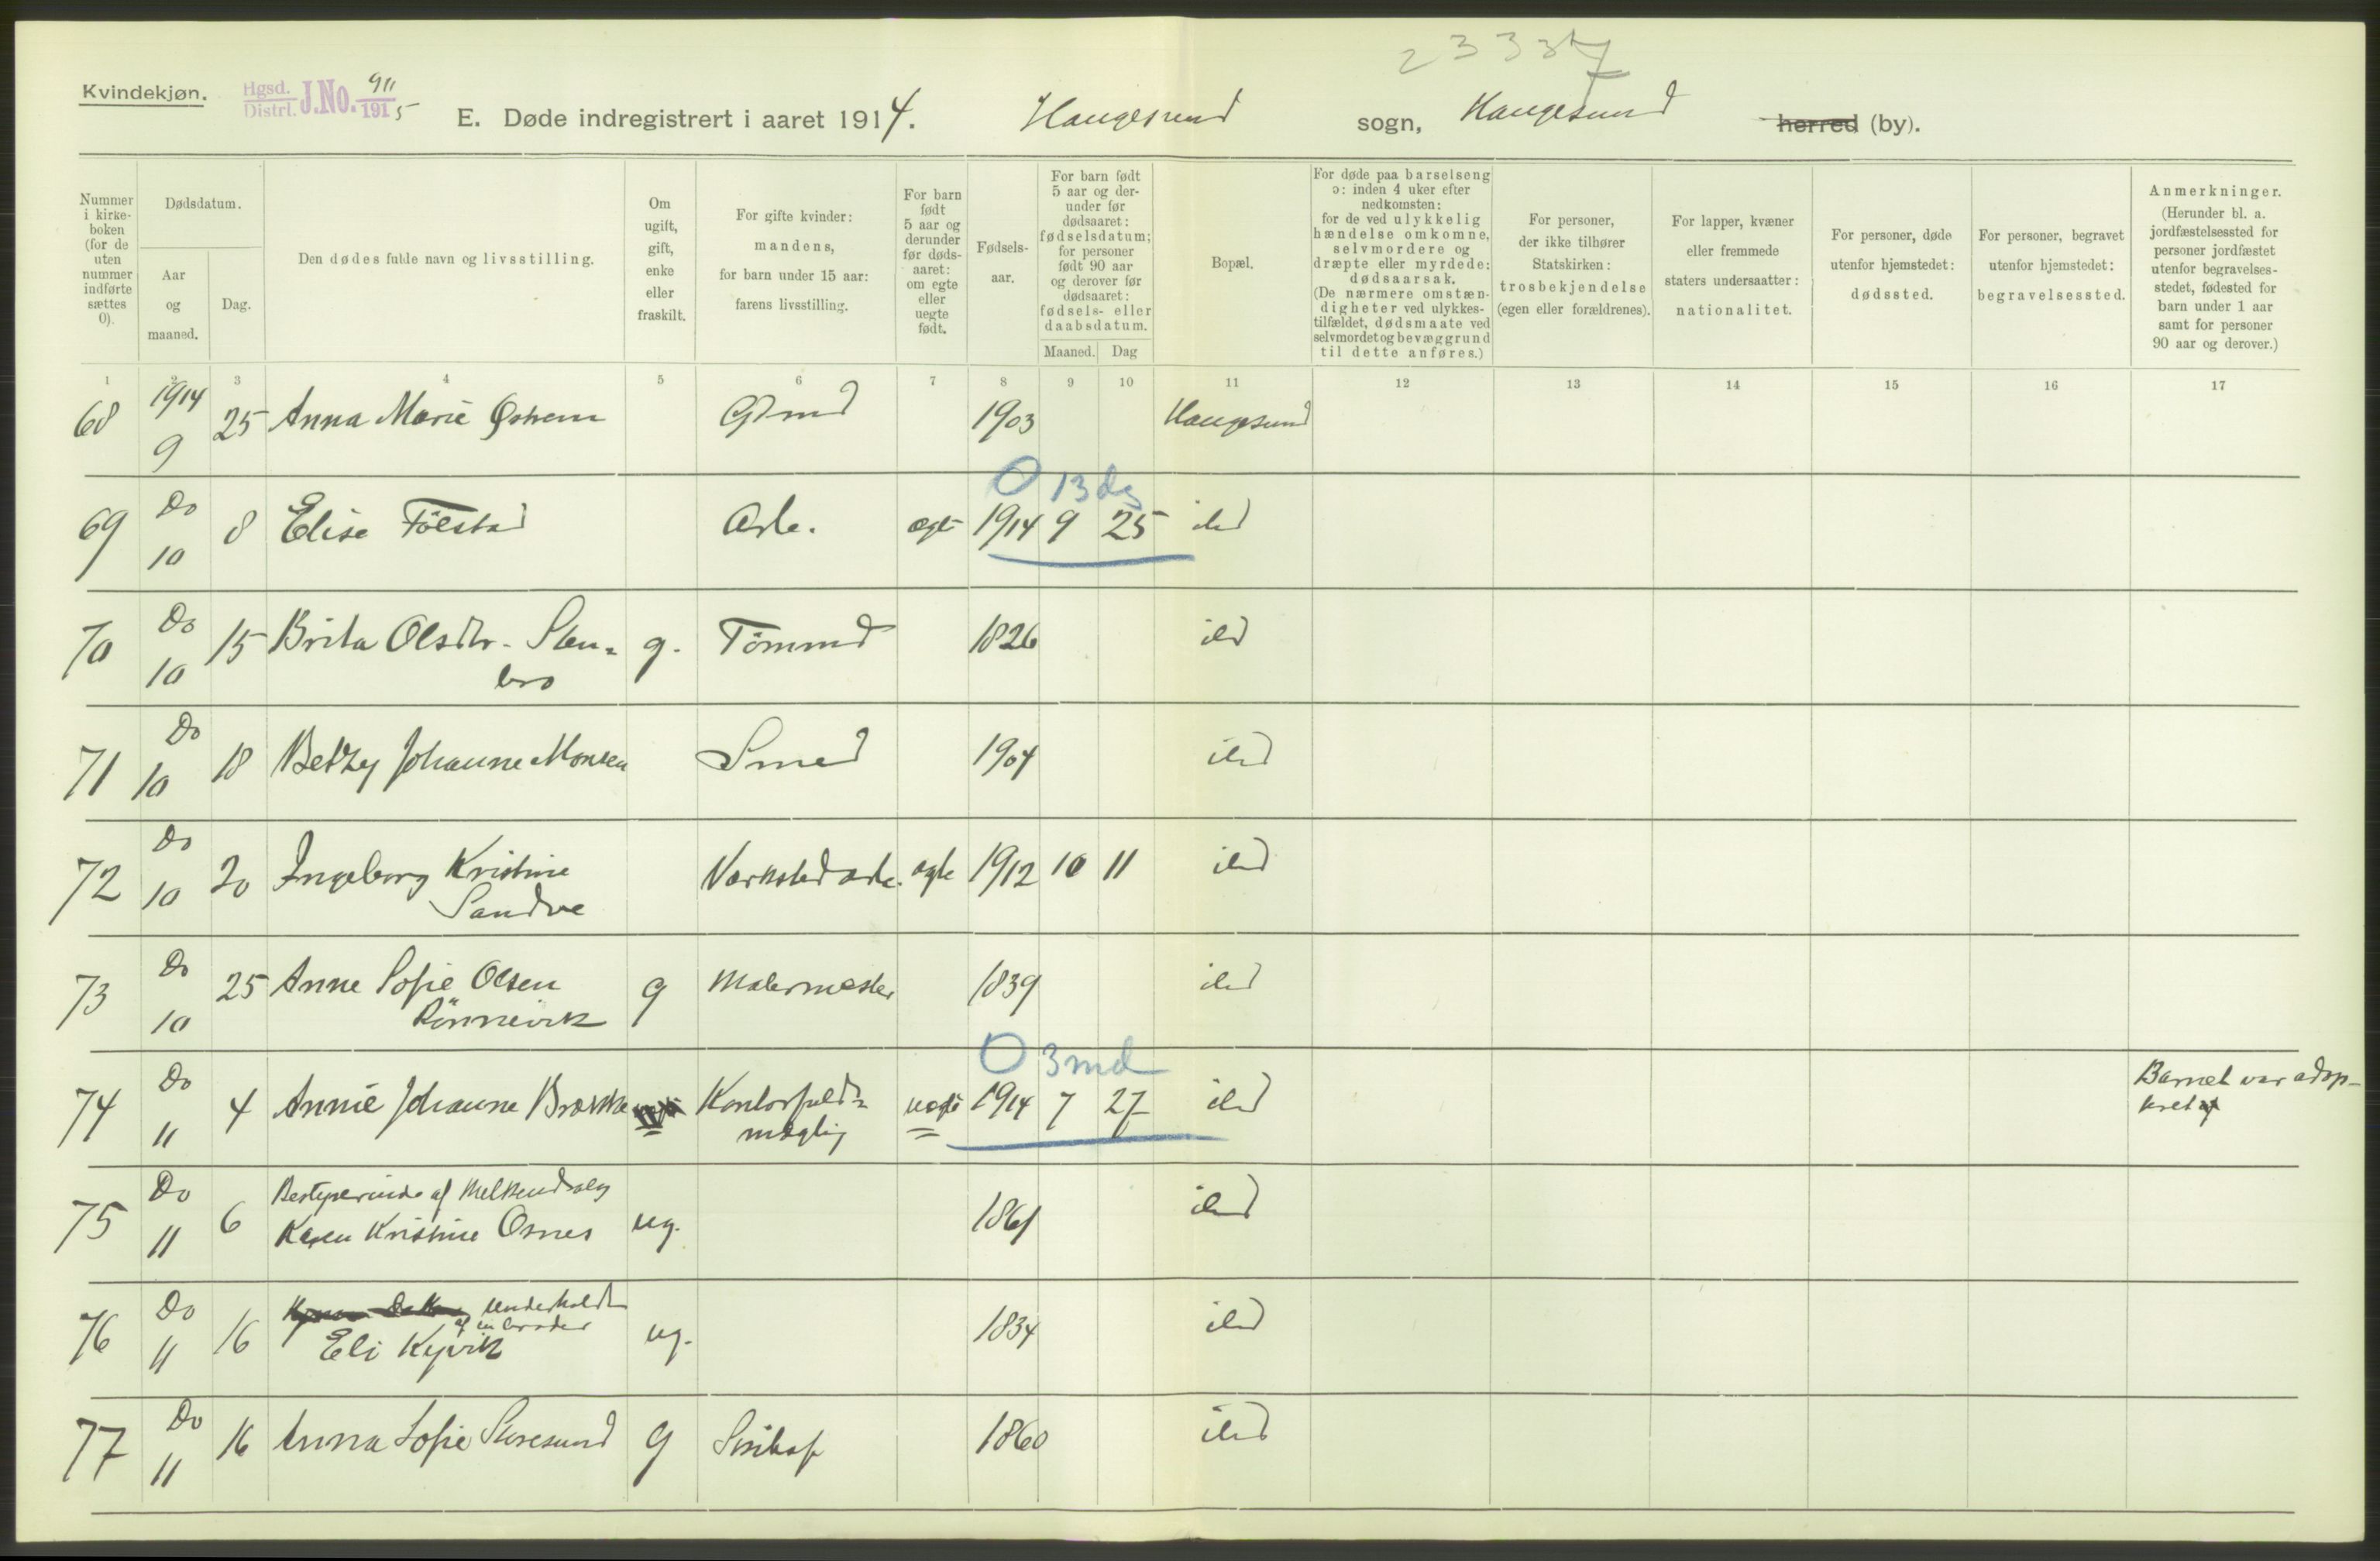 23337
Kvindekjøn.
Hgsd. Distrl. J.No. 911 1915
E. Døde indregistrert i aaret 1914.
Haugesund sogn, Haugesund herred (by).
Nummer i kirkeboken (for de uten nummer indførte sættes 0).
Dødsdatum.
Aar og maaned.
Dag.
Den dødes fulde navn og livsstilling.
Om ugift, gift, enke eller fraskilt.
For gifte kvinder: mandens, for barn under 15 aar: farens livsstilling.
For barn født 5 aar og derunder før dødsaaret: om egte eller uegte født.
Fødselsaar.
For barn født 5 aar og derunder før dødsaaret: fødselsdatum; for personer født 90 aar og derover før dødsaaret: fødsels- eller daabsdatum.
Maaned. Dag
Bopæl.
For døde paa barselseng ɔ: inden 4 uker efter nedkomsten: for de ved ulykkelig hændelse omkomne, selvmordere og dræpte eller myrdede: dødsaarsak. (De nærmere omstændigheter ved ulykkestilfældet, dødsmaate ved selvmordet og bevæggrund til dette anføres.)
For personer, der ikke tilhører Statskirken: trosbekjendelse (egen eller forældrenes).
For lapper, kvæner eller fremmede staters undersaatter: nationalitet.
For personer, døde utenfor hjemstedet: dødssted.
For personer, begravet utenfor hjemstedet: begravelsessted.
Anmerkninger. (Herunder bl. a. jordfæstelsessted for personer jordfæstet utenfor begravelsesstedet, fødested for barn under 1 aar samt for personer 90 aar og derover.)
1 2 3 4 5 6 7 8 9 10 11 12 13 14 15 16 17
68 1914 9 25 Anna Marie Østrem Gmd 1903 Haugesund
0 13 dg
69 Do 10 8 Elise Følstad Arb. egte 1914 9 25 ibd
70 Do 10 15 Brita Olsdtr. Sten=
bro g. Tömmd 1826 ibd
71 Do 10 18 Betzy Johanne Monsen Smed 1904 ibd
72 Do 10 20 Ingeborg Kristine
Sandve Værkstedarb. egte 1912 10 11 ibd
73 Do 10 25 Anne Sofie Olsen
Rönnevik g Malermester 1839 ibd
0 3 md
74 Do 11 4 Annie Johanne Kontorfuld=
mægtig uegte 1914 7 27 ibd Barnet var adop-
tret
75 Do 11 6 Bestyrerinde af Melkeudsalg
Karen Kristine Osnes ug. 1861 ibd
76 Do 11 16 Underholdt
af en broder
Eli Kyvik ug. 1834 ibd
77 Do 11 16 Anna Sofie Storesund g 1860 ibd